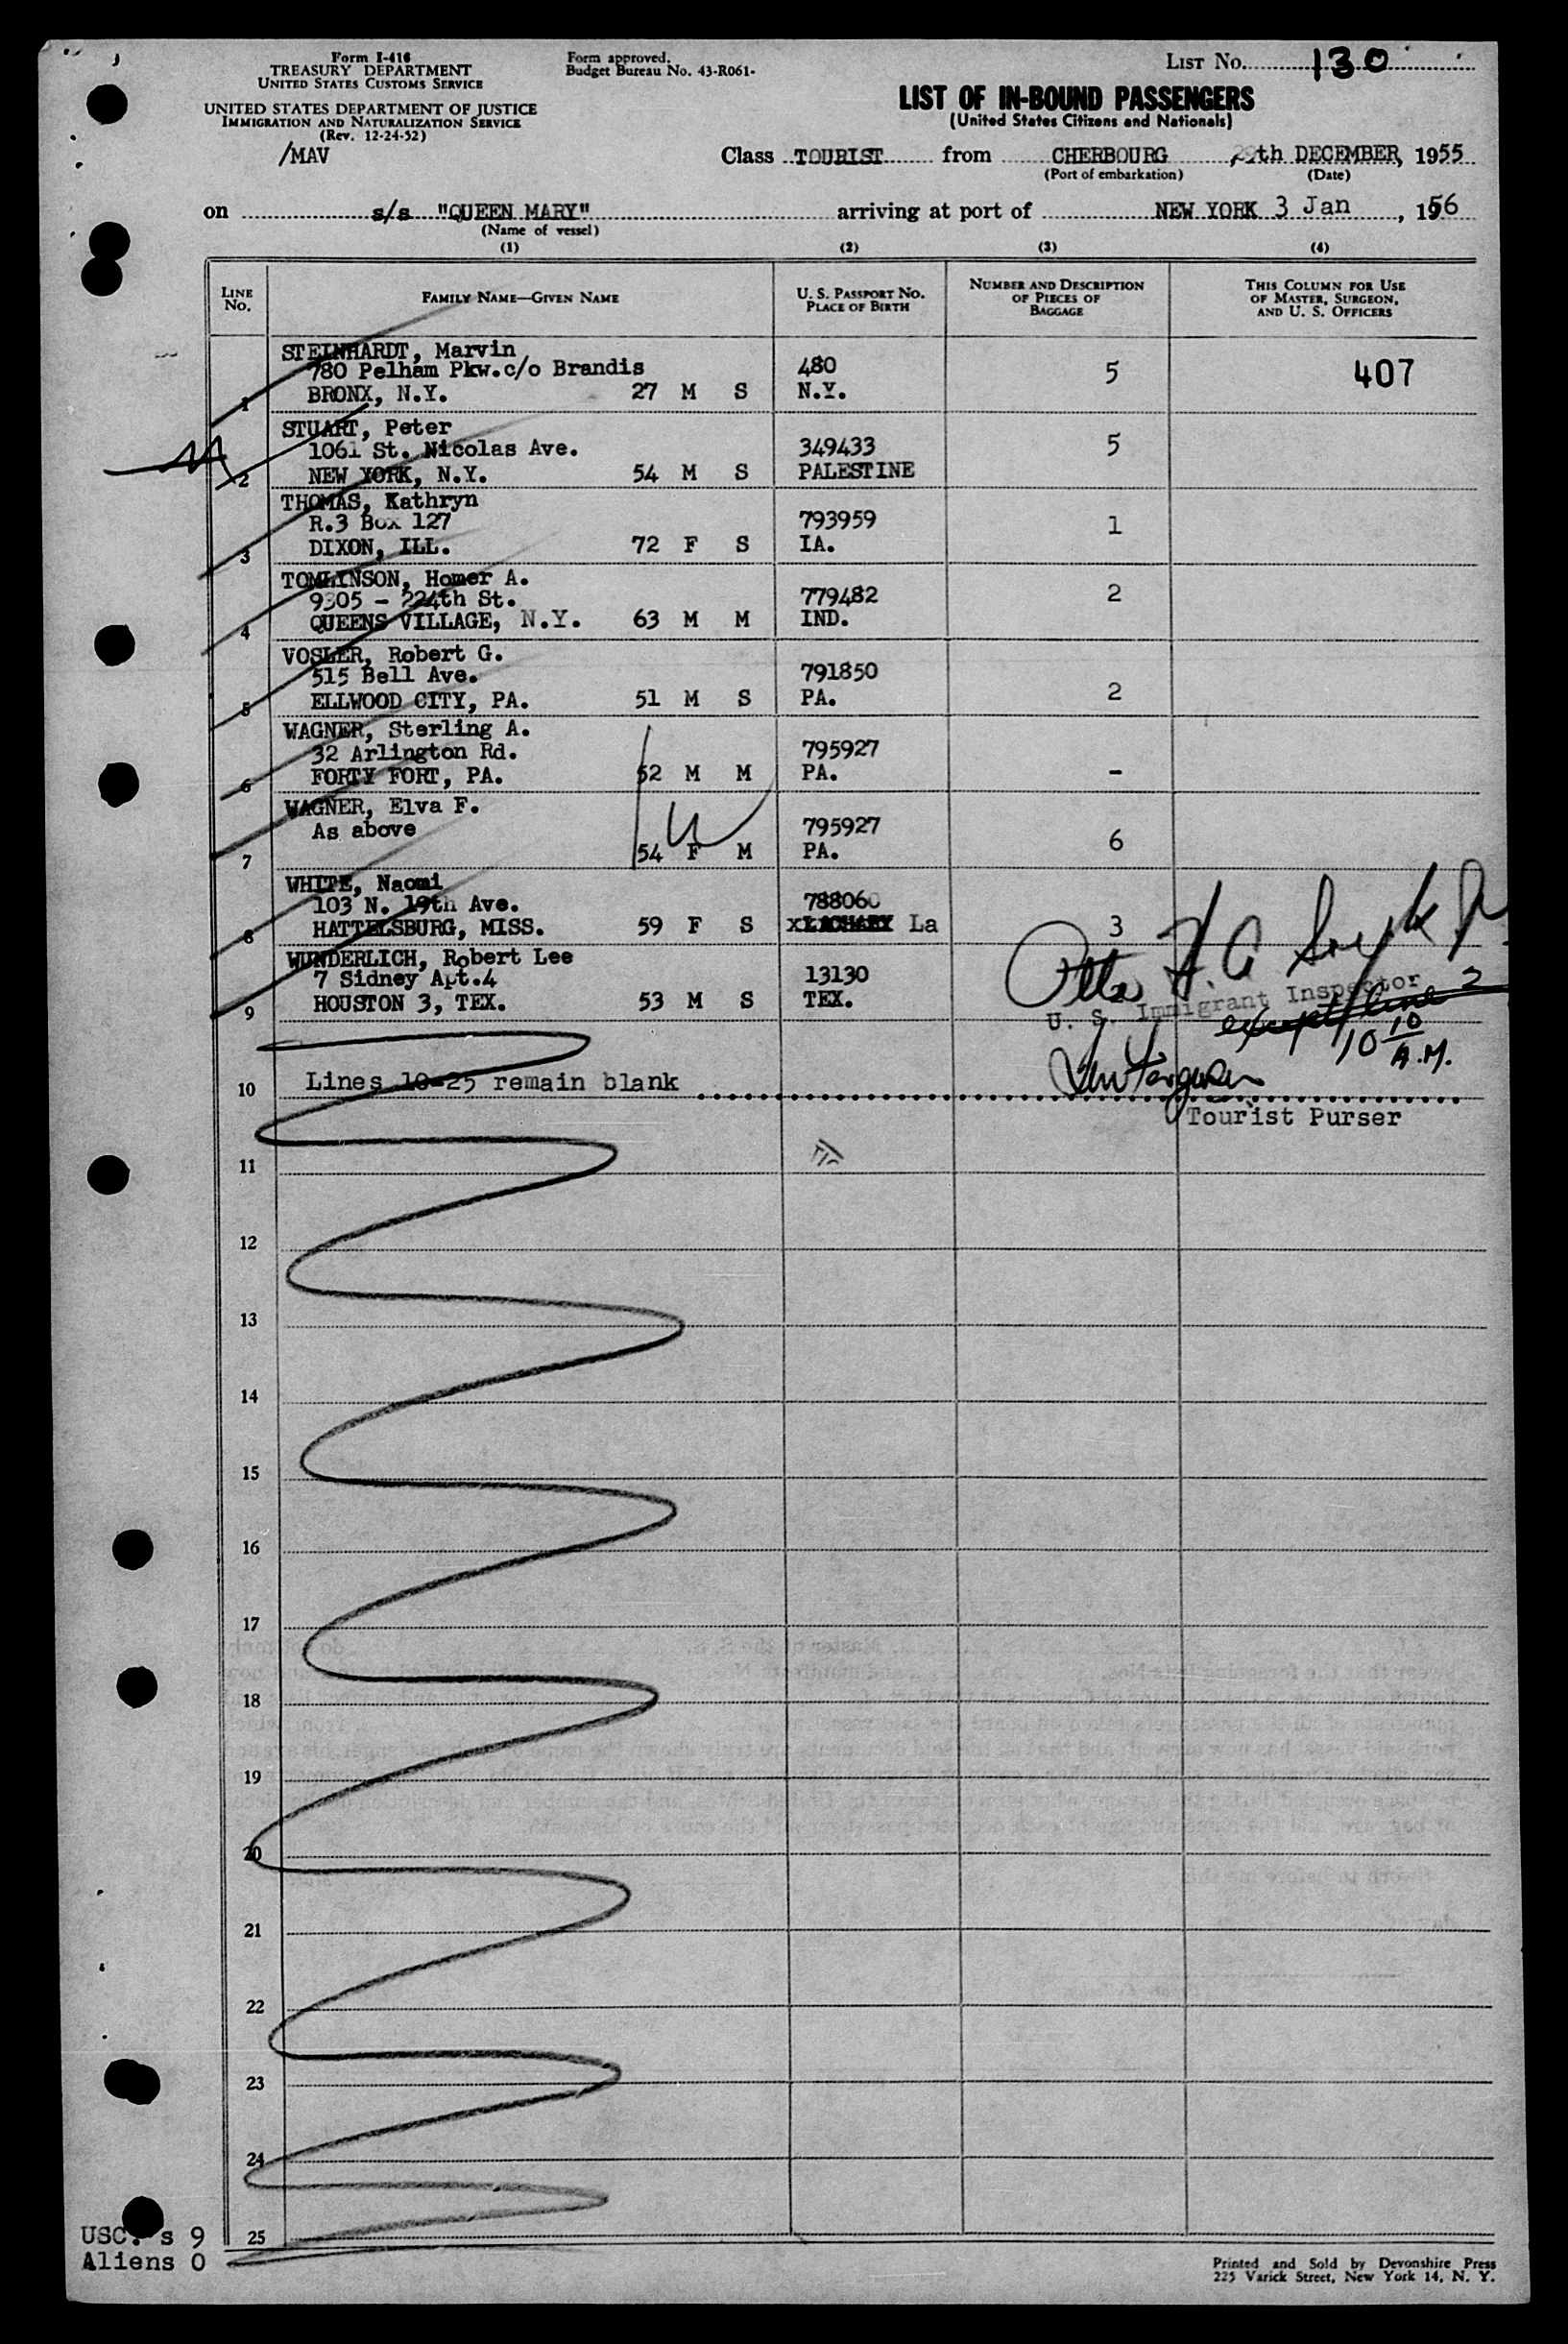 Form I-416
TREASURY DEPARTMENT
UNITED STATES CUSTOMS SERVICE
UNITED STATES DEPARTMENT OF JUSTICE
IMMIGRATION AND NATURALIZATION SERVICE
(Rev. 12-24-52)
/MAV
Form approved.
Budget Bureau No. 43-R061-
LIST No. 130
LIST OF IN-BOUND PASSENGERS
(United States Citizens and Nationals)
Class TOURIST from CHERBOURG DECEMBER, 1955
(Port of embarkation) (Date)
on s/s "QUEEN MARY" arriving at port of NEW YORK 3 Jan, 1956
(Name of vessel)
(1) (2) (3) (4)
LINE No. FAMILY NAME—GIVEN NAME U. S. PASSPORT NO. PLACE OF BIRTH NUMBER AND DESCRIPTION OF PIECES OF BAGGAGE THIS COLUMN FOR USE OF MASTER, SURGEON, AND U. S. OFFICERS
STEINHARDT, Marvin
780 Pelham Pkw.c/o Brandis 480 5 407
1 BRONX, N.Y. 27 M S N.Y.
STUART, Peter
1061 St. Nicolas Ave. 349433 5
2 NEW YORK, N.Y. 54 M S PALESTINE
THOMAS, Kathryn
R.3 Box 127 793959 1
3 DIXON, ILL. 72 F S IA.
TOMLINSON, Homer A.
9305 - 224th St. 779482 2
4 QUEENS VILLAGE, N.Y. 63 M M IND.
VOSLER, Robert G.
515 Bell Ave. 791850
5 ELLWOOD CITY, PA. 51 M S PA. 2
WAGNER, Sterling A.
32 Arlington Rd. 795927
6 FORTY FORT, PA. 52 M M PA. -
WAGNER, Elva F.
As above 795927 6
7 54 F M PA.
WHITE, Naomi
103 N. 19th Ave. 788060
8 HATTELSBURG, MISS. 59 F S La 3
WUNDERLICH, Robert Lee
7 Sidney Apt.4 13130
9 HOUSTON 3, TEX. 53 M S TEX. 2
U. S. Immigrant Inspector
except line 2
10 10 A.M.
10 Lines 10-25 remain blank
Tourist Purser
11
12
13
14
15
16
17
18
19
20
21
22
23
24
25
USC. s 9
Aliens 0
Printed and Sold by Devonshire Press
225 Varick Street, New York 14, N. Y.